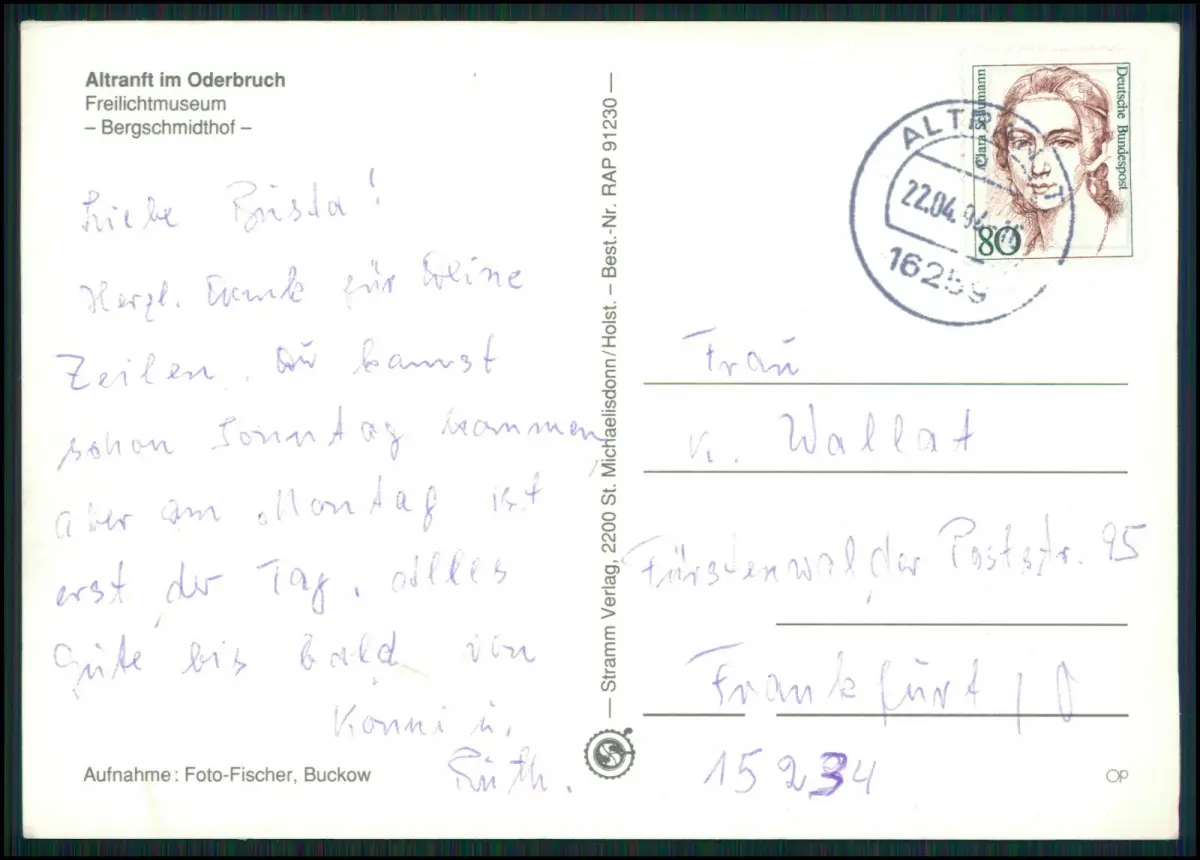 Altranft im Oderbruch
Freilichtmuseum
– Bergschmidthof –
Liebe Büsta!
Herzl. Dank für Deine
Zeilen. Du kannst
schon Sonntag kommen,
aber am Montag ist
erst der Tag. Alles
Gute bis bald von
Konni u.
Ruth.
Aufnahme: Foto-Fischer, Buckow
— Stramm Verlag, 2200 St. Michaelisdonn/Holst. – Best.-Nr. RAP 91230 —
Clara Schumann
Deutsche Bundespost
80
ALTRANFT
22.04.
16259
Frau
K. Wallat
Fürstenwalder Poststr. 95
Frankfurt / O
15234